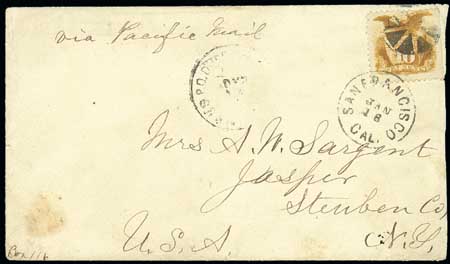 via Pacific Mail
10
SAN FRANCISCO
JAN
18
CAL.
Mrs A. W. Sargent
Jasper
Steuben Co,
U.S.A. N.Y.